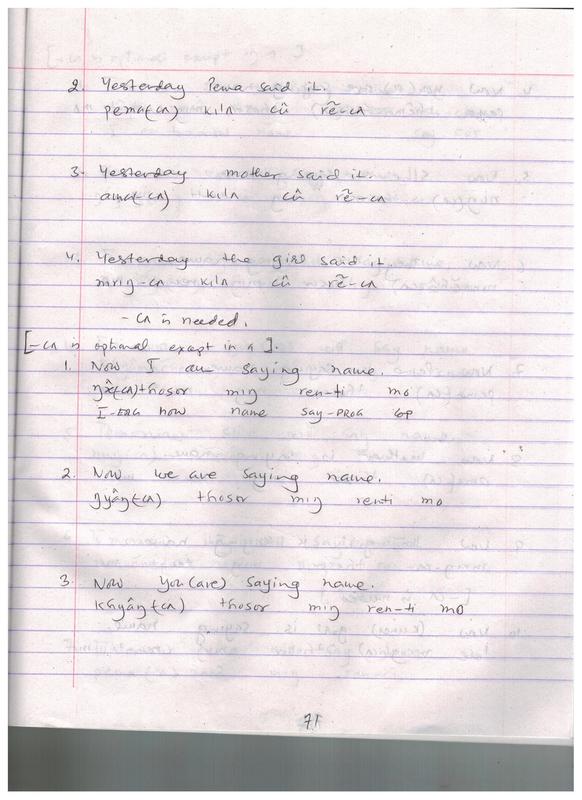 2. Yesterday Pema said it.
pema(-cʌ) kilʌ cû rẽ-cʌ
3. Yesterday mother said it.
ama(-cʌ) kilʌ cû rẽ-cʌ
4. Yesterday the girl said it.
mriŋ-cʌ kilʌ cû rẽ-cʌ
-cʌ is needed.
[-cʌ is optional except in 4].
1. Now I am saying name.
thosor miŋ ren-ti mo
I-ERG now name say-PROG cop
2. Now we are saying name.
ŋyâŋ(-cʌ) thosor miŋ renti mo
3. Now you (are) saying name.
khyâŋ(-cʌ) thosor miŋ ren-ti mo
71